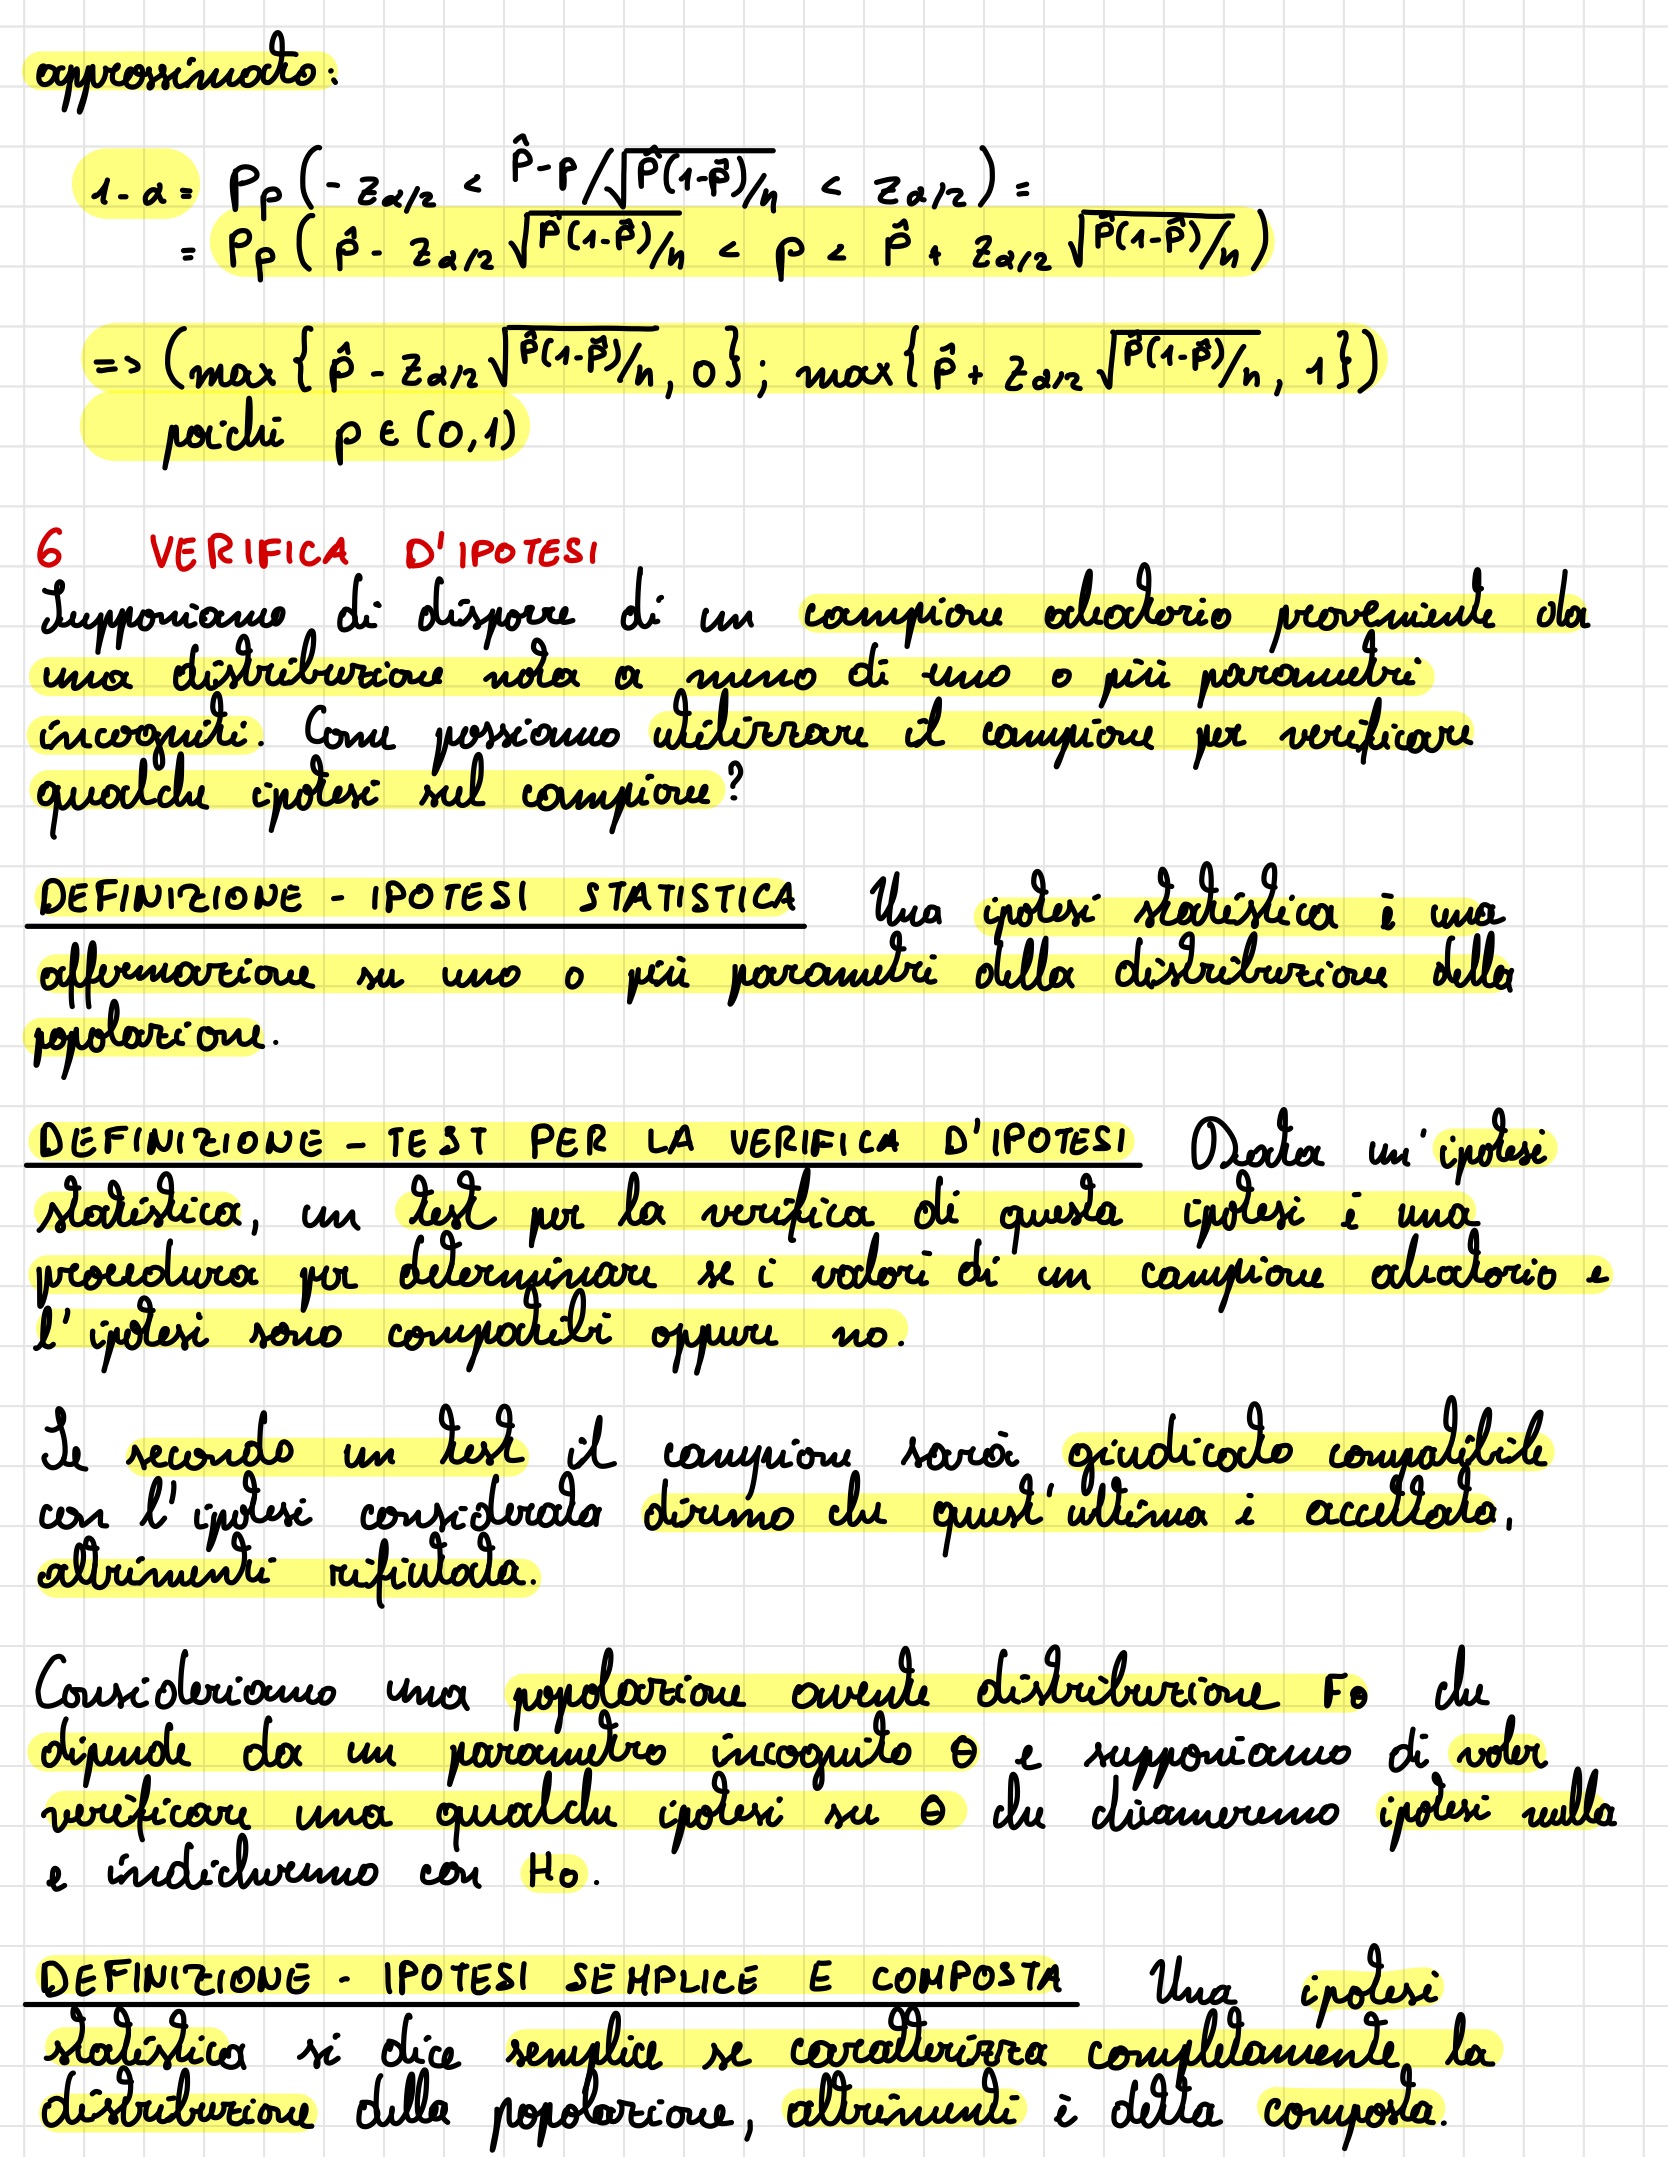 approssimato:
1-α = Pp (- zα/2 < p̂-p/√p̂(1-p̂)/n < zα/2) =
= Pp ( p̂ - zα/2 √p̂(1-p̂)/n < p < p̂ + zα/2 √p̂(1-p̂)/n )
=> (max { p̂ - zα/2 √p̂(1-p̂)/n, 0}; max{ p̂ + zα/2 √p̂(1-p̂)/n, 1})
poiché p ∈ (0,1)
6 VERIFICA D'IPOTESI
Supponiamo di disporre di un campione aleatorio proveniente da
una distribuzione nota a meno di uno o più parametri
incogniti. Come possiamo utilizzare il campione per verificare
qualche ipotesi sul campione?
DEFINIZIONE - IPOTESI STATISTICA Una ipotesi statistica è una
affermazione su uno o più parametri della distribuzione della
popolazione.
DEFINIZIONE - TEST PER LA VERIFICA D'IPOTESI Data un'ipotesi
statistica, un test per la verifica di questa ipotesi è una
procedura per determinare se i valori di un campione aleatorio e
l'ipotesi sono compatibili oppure no.
Se secondo un test il campione sarà giudicato compatibile
con l'ipotesi considerata diremo che quest'ultima è accettata,
altrimenti rifiutata.
Consideriamo una popolazione avente distribuzione Fθ che
dipende da un parametro incognito θ e supponiamo di voler
verificare una qualche ipotesi su θ che chiameremo ipotesi nulla
e indicheremo con H0.
DEFINIZIONE - IPOTESI SEMPLICE E COMPOSTA Una ipotesi
statistica si dice semplice se caratterizza completamente la
distribuzione della popolazione, altrimenti è detta composta.